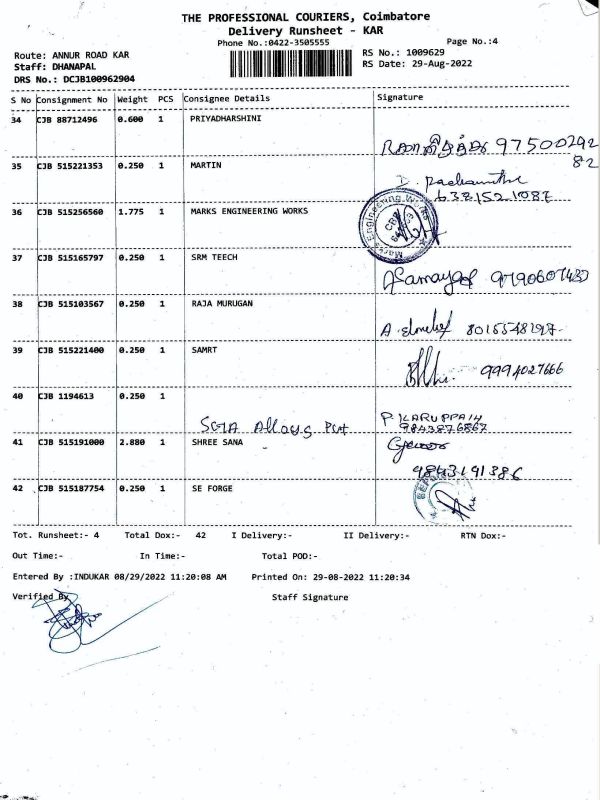 THE PROFESSIONAL COURIERS, Coimbatore
Delivery Runsheet - KAR
Phone No.:0422-3505555
Page No.:4
Route: ANNUR ROAD KAR
RS No.: 1009629
Staff: DHANAPAL
RS Date: 29-Aug-2022
DRS No.: DCJB100962904
S No Consignment No Weight PCS Consignee Details Signature
34 CJB 88712496 0.600 1 PRIYADHARSHINI
97500292
82
35 CJB 515221353 0.250 1 MARTIN
6381521087
36 CJB 515256560 1.775 1 MARKS ENGINEERING WORKS
Marks Engineering Works
37 CJB 515165797 0.250 1 SRM TEECH
38 CJB 515103567 0.250 1 RAJA MURUGAN
39 CJB 515221400 0.250 1 SAMRT
9994027666
40 CJB 1194613 0.250 1
P KARUPPAIH
9843876867
Alloys
41 CJB 515191000 2.880 1 SHREE SANA
9843191386
42 CJB 515187754 0.250 1 SE FORGE
Tot. Runsheet:- 4 Total Dox:- 42 I Delivery:- II Delivery:- RTN Dox:-
Out Time:- In Time:- Total POD:-
Entered By :INDUKAR 08/29/2022 11:20:08 AM Printed On: 29-08-2022 11:20:34
Verified By
Staff Signature